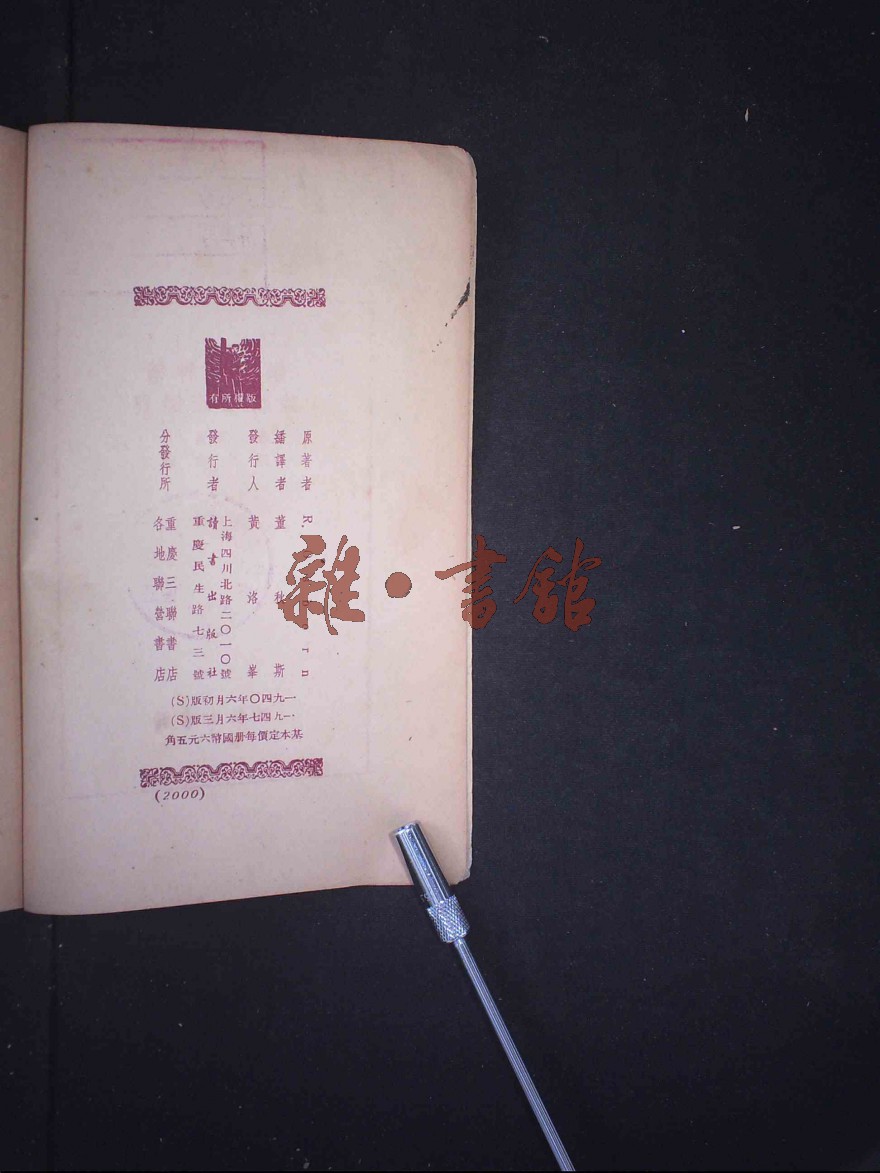 版權所有
原著者 R. rn
繙譯者 董秋斯
發行人 黃洛峯
發行者 讀書出版社
上海四川北路二〇一〇號
重慶民生路七三號
分發行所 重慶三聯書店
各地聯營書店
一九四〇年六月初版(S)
一九四七年六月三版(S)
基本定價每册國幣六元五角
(2000)
雜·書館